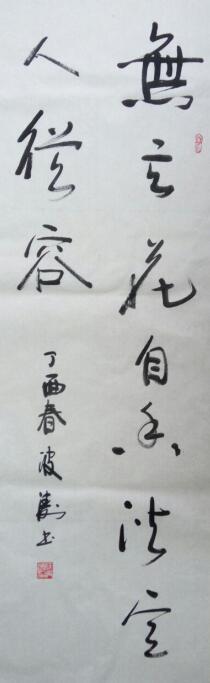 無言花自香淡定
人從容
丁酉春波濤書